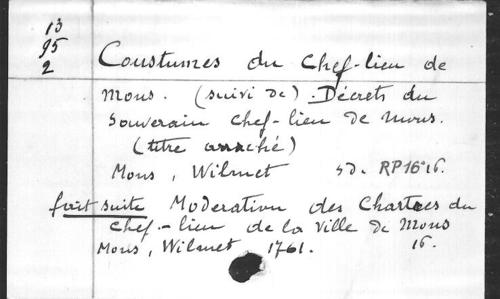 13
95
2
Coustumes du Chef-lieu de
Mons. (suivi de) Décrets du
Souverain Chef-lieu de Mons.
(titre arraché)
Mons, Wilmet sd. RP16°16.
fait suite Moderation des Chartes du
Chef.-lieu de la Ville de Mons
Mons, Wilmet 1761. 16.